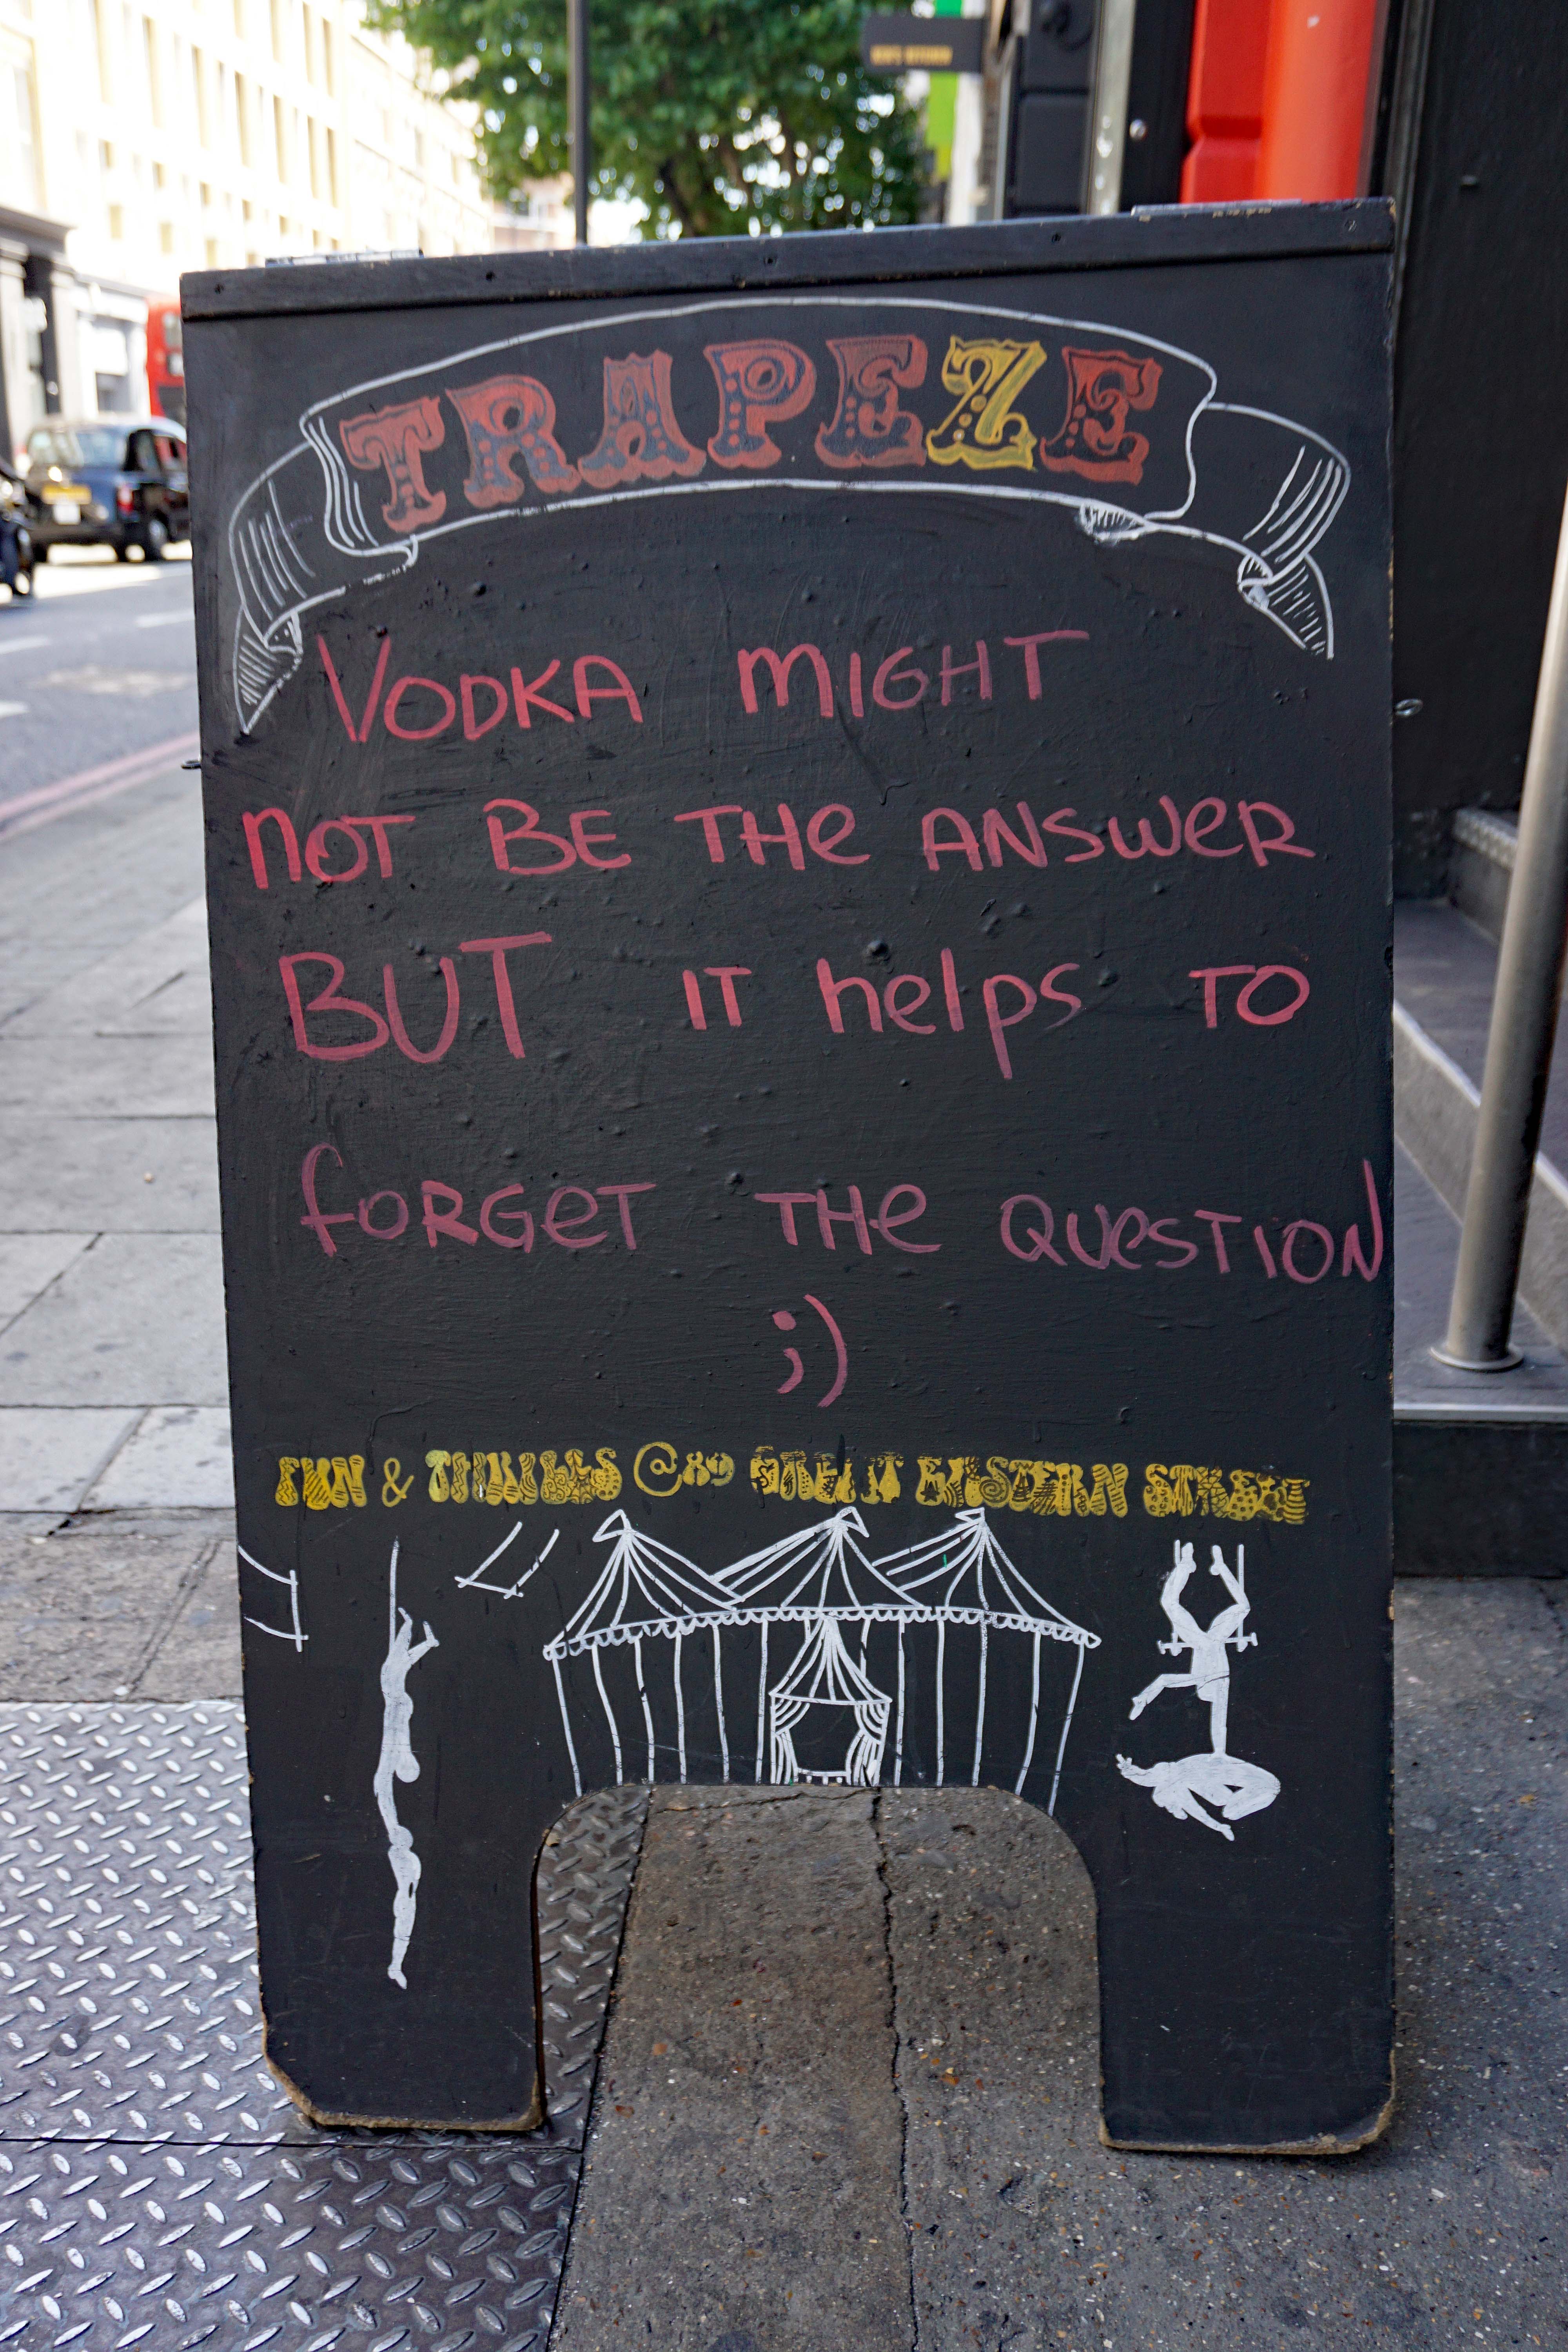 TRAPEZE
VODKA MIGHT
NOT BE THE ANSWER
BUT IT helps TO
FORGET THE QUESTION
;)
FUN & THRILLS @ 89 GREAT EASTERN STREET